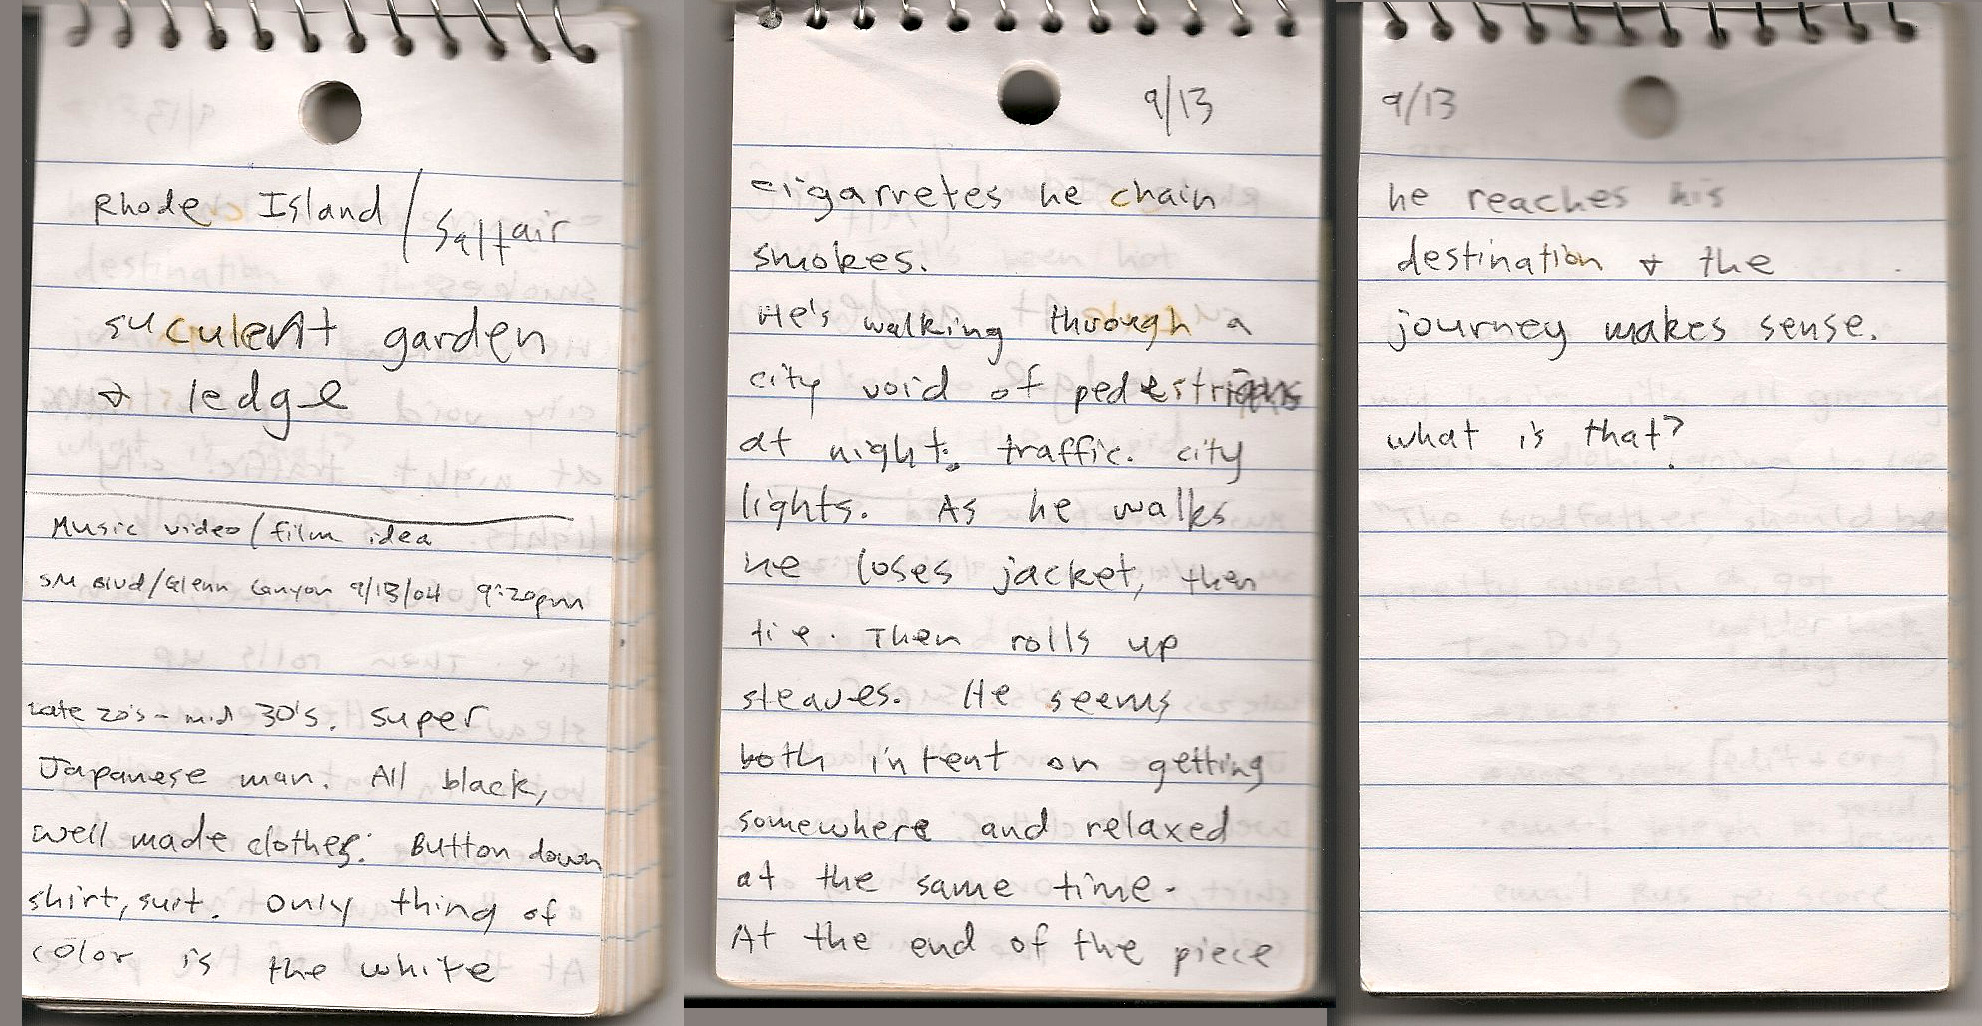 Rhode Island / Saltair
succulent garden
& ledge
Music video/film idea
SM Blvd/Glenn Canyon 9/13/04 9:20pm
Late 20's - mid 30's. super
Japanese man. All black,
well made clothes: Button down
shirt, suit. Only thing of
color is the white
9/13
cigarretes he chain
smokes.
He's walking through a
city void of pedestrians
at night. traffic. city
lights. As he walks
he loses jacket, then
tie. Then rolls up
sleaves. He seems
both intent on getting
somewhere and relaxed
at the same time.
At the end of the piece
9/13
he reaches his
destination & the
journey makes sense.
what is that?